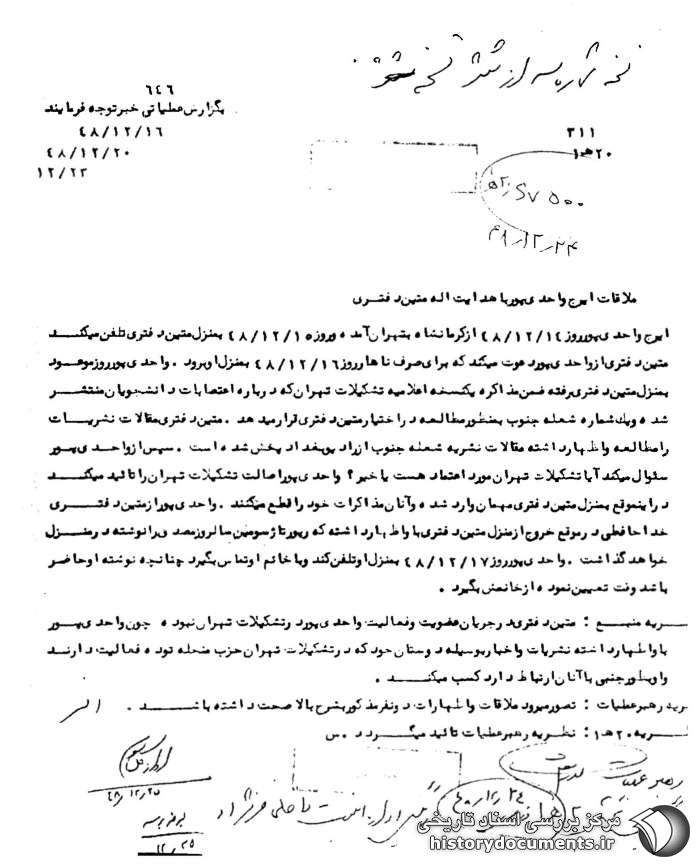 نسخه شماره سه از شش نسخه
۶۴۶
بگزارش عملیاتی خبر توجه فرمایند
۴۸/۱۲/۱۶
۴۸/۱۲/۲۰
۱۲/۲۳
۳۱۱
۲۰ هـ ۱
۴۸٫۱۲٫۲۴
ملاقات ایرج واحدی پور با هدایت اله متین دفتری
ایرج واحدی پور روز ۴۸/۱۲/۱۴ از کرمانشاه بتهران آمده و روز ۴۸/۱۲/۱۵ بمنزل متین دفتری تلفن میکند
متین دفتری از واحدی پور دعوت میکند که برای صرف ناهار روز ۴۸/۱۲/۱۶ بمنزل او برود . واحدی پور روز موعود
بمنزل متین دفتری رفته ضمن مذاکره یکنسخه اعلامیه تشکیلات تهران که درباره اعتصابات دانشجویان منتشر
شده و یک شماره شعله جنوب بمنظور مطالعه در اختیار متین دفتری قرار میدهد . متین دفتری مقالات نشریات
را مطالعه و اظهار داشته مقالات نشریه شعله جنوب از رادیو بغداد پخش شده است . سپس از واحدی پور
سئوال میکند آیا تشکیلات تهران مورد اعتماد هست یا خیر؟ واحدی پور اصالت تشکیلات تهران را تائید میکند
در اینموقع بمنزل متین دفتری میهمان وارد شده و آنان مذاکرات خود را قطع میکنند . واحدی پور از متین دفتری
خداحافظی در موقع خروج از منزل متین دفتری باو اظهار داشته که رپورتاژ سومین سالروز مصدق را نوشته در منزل
خواهد گذاشت . واحدی پور روز ۴۸/۱۲/۱۷ بمنزل او تلفن کند و با خانم او تماس بگیرد چنانچه نوشته او حاضر
باشد وقت تعیین نموده از خانمش بگیرد .
ـریه منبع : متین دفتری در جریان عضویت و فعالیت واحدی پور در تشکیلات تهران نبوده چون واحدی پور
باو اظهار داشته نشریات و اخبار بوسیله دوستان خود که در تشکیلات تهران حزب منحله توده فعالیت دارند
و او بطور جنبی با آنان ارتباط دارد کسب میکند .
ـریه رهبر عملیات : تصور میرود ملاقات و اظهارات دونفر مذکور بشرح بالا صحت داشته باشد .
ـریه ۲۰ هـ ۱ : نظریه رهبر عملیات تائید میگردد . س
۴۸٫۱۲٫۲۵
رهبر عملیات
۴۸٫۱۲٫۲۴
۱۲٫۲۵
مرکز بررسی اسناد تاریخی
historydocuments.ir